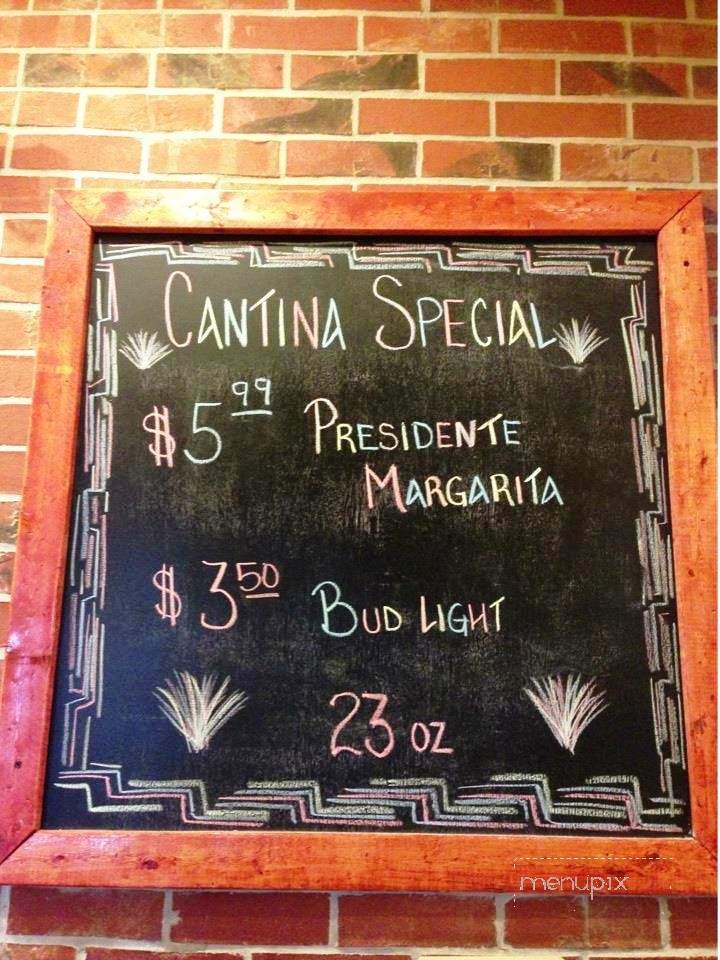 CANTINA SPECIAL
$5.99 PRESIDENTE
MARGARITA
$3.50 BUD LIGHT
23 OZ
menupix